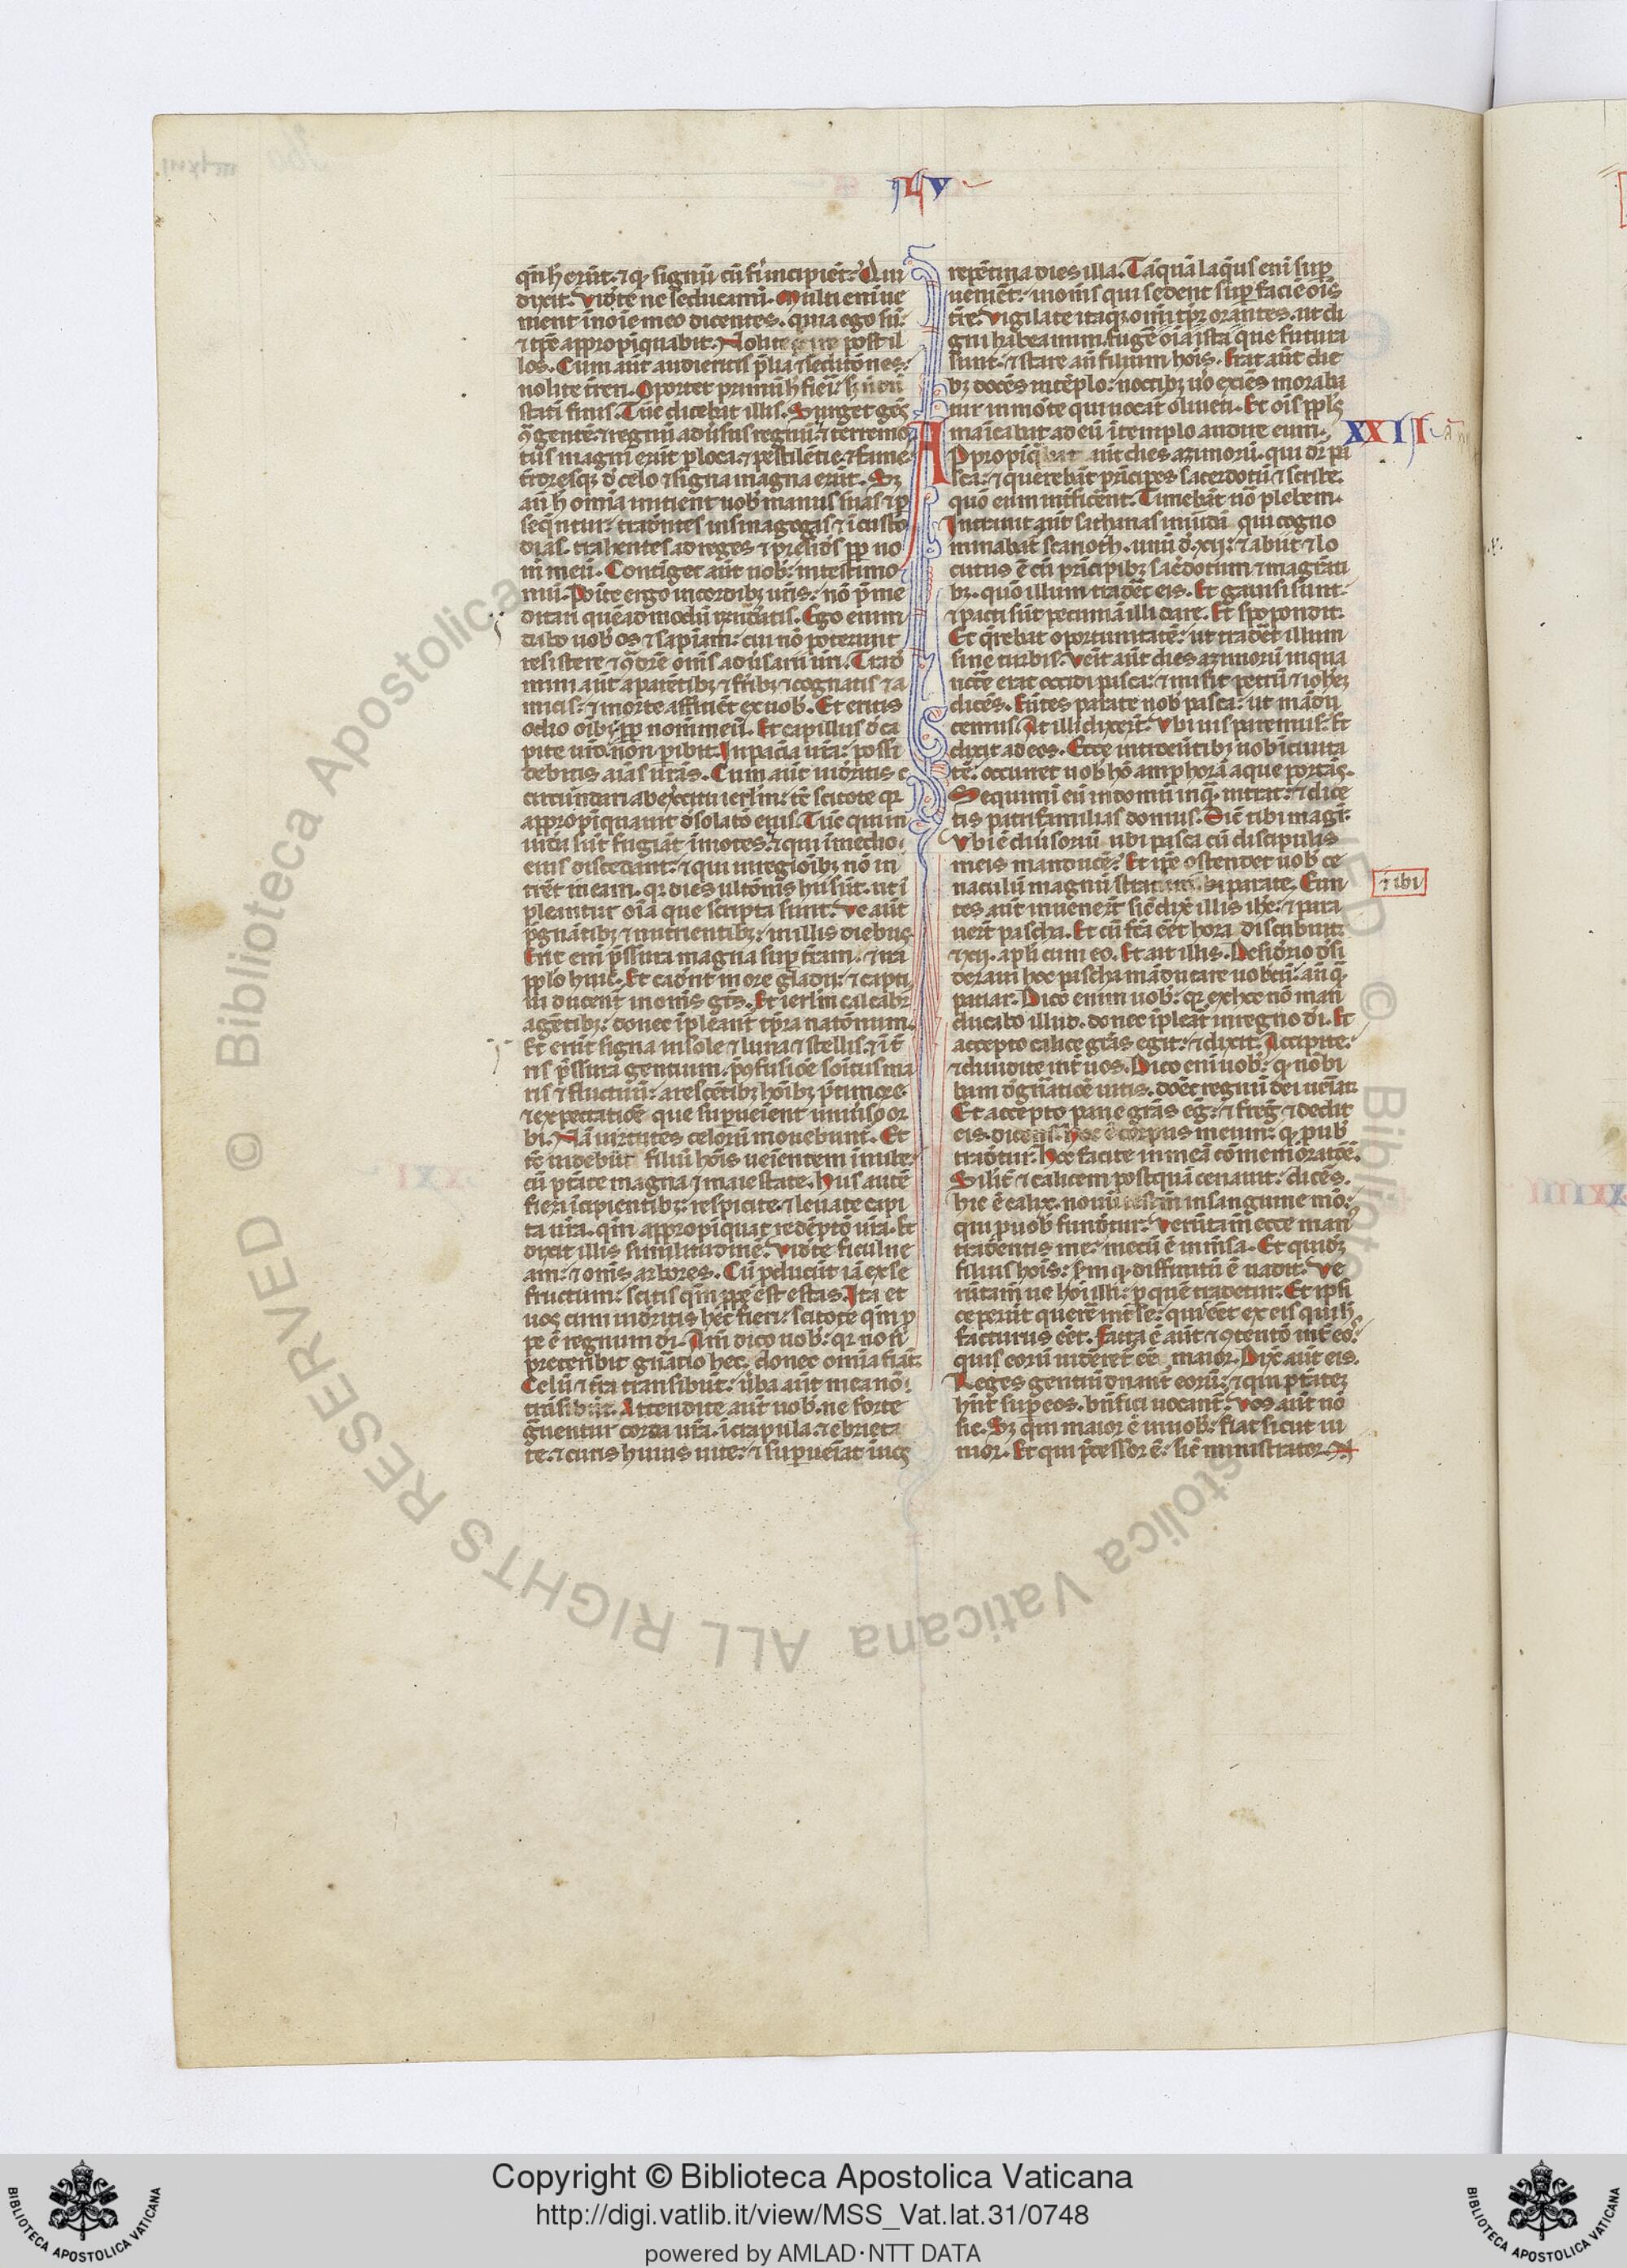 LV
qñ h̄ erūt. ⁊ qđ signū cū fi īncipiēt. Qui
dixit. Videte ne seducami. Multi eni ue
nient in noīe meo dicentes. quia ego sū.
⁊ tp̄s appropinquabit. Nolite ire post il
los. Cum aūt audieritis p̄lia ⁊ seditōnes.
nolite t̄reri. Oportet primū h̄ fieri. sꝫ nōdū
statī finis. Tūc dicebat illis. Surget gēs
ꝯ gentē. ⁊ regnū aduersus regnū. ⁊ terremo
tus magni erūt p loca. ⁊ pestilētie. ⁊ fame
t̄roresqꝫ d̄ celo ⁊ signa magna erūt. Sꝫ
an̄ h̄ omīa inicient uob̄ manus suas ⁊ ꝑ
seqūtur. tradentes in sinagogas ⁊ ī custo
dias. trahentes ad reges ⁊ presides ꝓp no
m̄ meū. Continget aūt uob̄. in testimo
niū. Ponite ergo in cordibꝫ ur̄is. nō p̄me
ditari quēadmodū rn̄deatis. Ego enim
dabo uob̄ os ⁊ sapīam. cui nō poterunt
resistere ⁊ ꝯdic̄re om̄s aduersarii ur̄i. Trade
mini aūt a parētibꝫ ⁊ fr̄ibꝫ ⁊ cognatis ⁊ a
micis. ⁊ morte afficiēt ex uob̄. Et eritis
odio oībꝫ ꝓp nomen meū. Et capillus d̄ ca
pite ur̄o. non ꝑibit. In pacīa ur̄a. possi
debitis aīas ur̄as. Cum aūt uid̄itis c
circūdari ab exercitu ierl̄m. tc̄ scitote qr
appropinquauit d̄solatō eius. Tūc qui in
iudea sūt fugiāt ī montes. ⁊ qui ī medio
eius discedant. ⁊ qui in regionibꝫ nō in
trēt in eam. qr dies ultōnis hii sūt. ut ī
pleantur oīa que scripta sunt. Ve aūt
p̄gnātibꝫ ⁊ nutrientibꝫ. in illis diebus.
Erit enī p̄ssura magna suꝑ terram. ⁊ ira
pplo huic. Et cadent in ore gladii. ⁊ capti
ui ducent̄ in om̄s gēs. Et ierl̄m calcabr̄
a gentibꝫ. donec īpleant̄ tp̄ra natōnum.
Et erūt signa in sole ⁊ luna ⁊ stellis. ⁊ ī t̄
ris p̄ssura gentium. p̄ ꝯfusioē sonitus ma
ris ⁊ fluctuū. arescētibꝫ hoībꝫ p̄ timore.
⁊ expectatiōe que supueīent uniu͛so or
bi. Nā uirtutes celorū mouebunt̄. Et
tc̄ uidebūt filiū hoīs ueīentem ī nube.
cū ptāte magna ⁊ maiestate. Hiis autē
fieri īcipientibꝫ. respicite. ⁊ leuate capi
ta ur̄a. qm̄ appropinquat redēptō ur̄a. Et
dixit illis similitudinē. Videte ficulne
am. ⁊ om̄s arbores. Cū ꝓducūt iā ex se
fructum. scitis qm̄ ꝓpe est estas. Ita et
uos cum uid̄itis hec fieri. scitote qm̄ ꝓ
pe ē regnum dī. Am̄ dico uob̄. qr nō
preteribit gn̄atio hec. donec omīa fiāt.
Celū ⁊ t̄ra transibūt. ūba aūt mea nō
trāsibūt. Attendite aūt uob̄. ne forte
grauentur corda ur̄a. ī crapula. ⁊ ebrieta
te. ⁊ curis huius uite. ⁊ supueīat ī uos
repētina dies illa. Tāquā laqus enī suꝑ
ueniēt. in om̄s qui sedent suꝑ faciē oīs
tr̄e. Vigilate itaqꝫ omī tp̄r orantes. ut di
gni habeamini. fugēr oīa ista que futura
sunt. ⁊ stare an̄ filium hoīs. Erat aūt die
bꝫ docēs in tēplo. noctibꝫ uō exiēs moraba
tur in mōte qui uocat̄ oliueti. Et oīs ppl̄s
manicabat ad eū ī templo audire eum.
XXII
Appropinquabat aūt dies azimorū. qui dr̄ pa
sca. ⁊ querebāt prīncipes sacerdotū ⁊ scribe.
quō eum int̄ficērent. Timebāt uō plebem.
Intrauit aūt sathanas in iudā qui cogno
minabat̄ scarioth. unū d̄ xij. ⁊ abiit ⁊ lo
cutus ē cū prīncipibꝫ sac̄dotum ⁊ magr̄ati
bꝫ. quō illum tradēt eis. Et gauisi sunt.
⁊ pacti sūt pecuniā illi dare. Et spopondit.
Et q̄rebat oportunitatē. ut tradēt illum
sine turbis. Venit aūt dies azimorū in qua
necc̄e erat occidi pasca. ⁊ misit petrū ⁊ ioheꝫ
dicēs. Eūtes parate nob̄ pasca. ut mādu
cemus. At illi dixerūt. Vbi uis paremus. Et
dixit ad eos. Ecce introeūtibꝫ uob̄ ī ciuita
tē. occurret uob̄ hō amphorā aque portās.
Sequimini eū in domū in qā intrat. ⁊ dice
tis patrifamilias domus. Dic̄ tibi magr̄.
Vbi ē diuersoriū ubi pasca cū discipulis
meis manducē. Et ip̄e ostendet uob̄ ce
naculū magnū stratum parate. Eun
⁊ ibi
tes aūt inuenerūt sic̄ dix̄ illis ihc̄. ⁊ para
uer̄t pascha. Et cū fc̄a eēt hora discubuit.
⁊ xij. apl̄i cum eo. Et ait illis. Desid̄io d̄si
deraui hoc pascha māducare uobcū. an̄ qā
patiar. Dico enim uob̄. qr ex hoc nō man
ducabo illud. donec īpleāt̄ in regno dī. Et
accepto calice gr̄as egit. ⁊ dixit. Accipite.
⁊ diuidite int̄ uos. Dico enī uob̄. qđ nō bi
bam d̄ gn̄atiōe uitis. donec regnū dei ueīat.
Et accepto pane gr̄as eḡ. ⁊ freḡ ⁊ dedit
eis. dicens. Hoc ē corpus meum. qđ p uob̄
tradetur. Hoc facite in meā cōmemoratōē.
Silīt̄ ⁊ calicem postquā cenauit. dicēs.
Hic ē calix nouū testm̄ in sanguine mō.
qui p uob̄ fundetur. Verūtam̄ ecce man
tradentis me. mecū ē in mēsa. Et quidē
filius hoīs. scd̄m qđ diffinitū ē uadit. Ve
rūtam̄ ue hoī illi. p quē tradetur. Et ipsi
ceperūt querēr int̄ se. quis eēt ex eis qui h̄
facturus eēt. Facta ē aūt ⁊ ꝯtentō int̄ eos.
quis eorū uideret̄ eē maior. Dix̄ aūt eis.
Reges gentiū dn̄ant̄ eorū. ⁊ qui ptātēꝫ
hn̄t suꝑ eos. bn̄fici uocant̄. Vos aūt nō
sic. Sꝫ qui maior ē in uob̄. fiat sicut iu
nior. Et qui p̄cessor ē. sic̄ ministrator. N
Copyright © Biblioteca Apostolica Vaticana
http://digi.vatlib.it/view/MSS_Vat.lat.31/0748
powered by AMLAD·NTT DATA
BIBLIOTECA APOSTOLICA VATICANA
BIBLIOTECA APOSTOLICA VATICANA
© Biblioteca Apostolica Vaticana ALL RIGHTS RESERVED